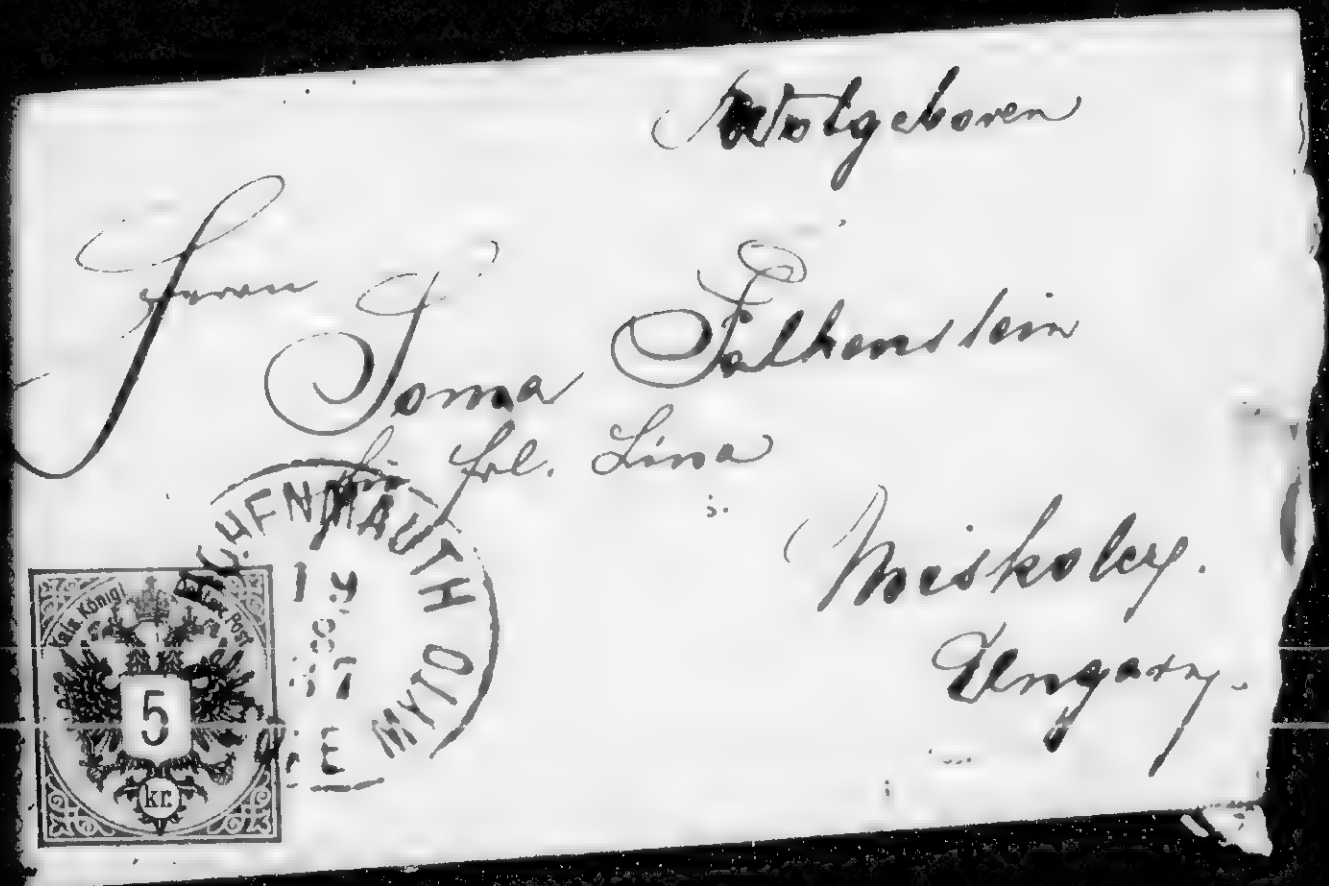 Wolgeboren
Herrn
Soma Falkenstein
für frl. Lina
Miskolcz.
Ungarn.
HFNMAUTH
MYTO
Kais. Königl. Oest. Post
5
kr.